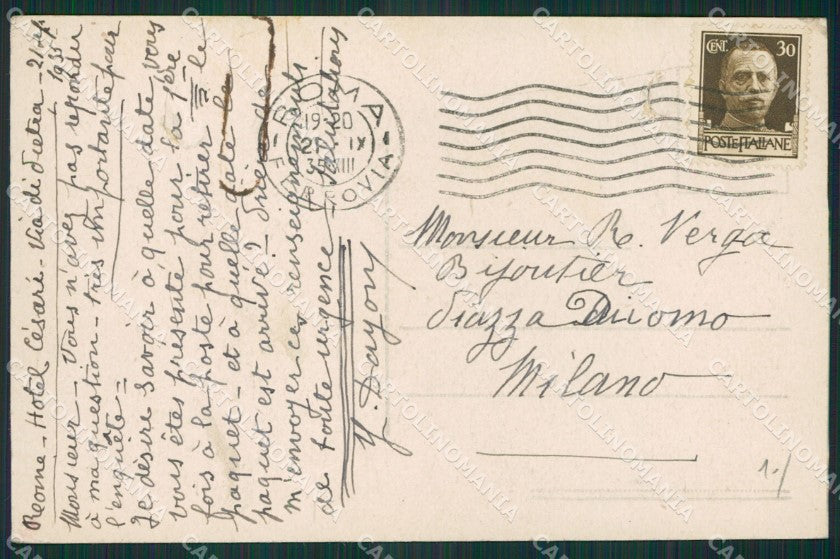 Rome - Hotel Césari - Via di Pietra - 21 sept. 1935
Monsieur - Vous n'avez pas répondu
à ma question - très importante pour
l'enquête =
Je désire savoir à quelle date vous
vous êtes présenté pour la 1ère
fois à la poste pour retirer le
paquet - et à quelle date le
paquet est arrivé? Prière de
m'envoyer ces renseignements
de toute urgence
Salutations
Y. Dayon
ROMA
19-20
21 IX
35 XIII
FERROVIA
CENT. 30
POSTE ITALIANE
Monsieur R. Verga
Bijoutier
Piazza Duomo
Milano
1./
CARTOLINOMANIA